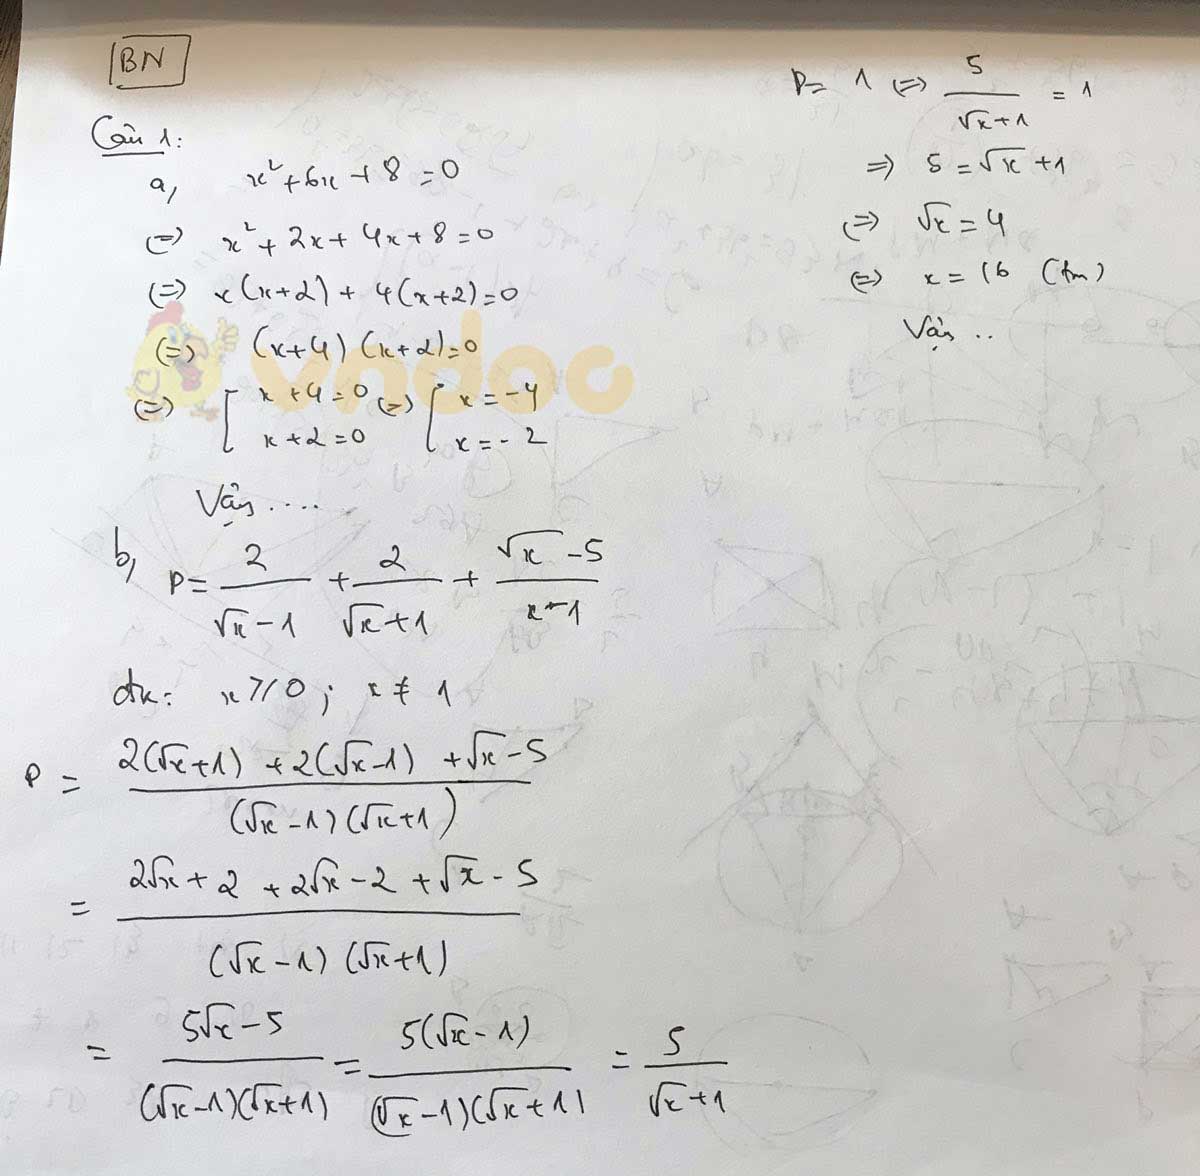 BN
Câu 1:
a, x² + 6x + 8 = 0
(=) x² + 2x + 4x + 8 = 0
(=) x(x+2) + 4(x+2) = 0
(=) (x+4)(x+2) = 0
(=) [ x+4=0 (=) [ x = -4
x+2=0 x = -2
Vậy ....
b, P = 2/(√x - 1) + 2/(√x + 1) + (√x - 5)/(x - 1)
đk: x ≥ 0 ; x ≠ 1
P = (2(√x+1) + 2(√x-1) + √x - 5)/((√x - 1)(√x + 1))
= (2√x + 2 + 2√x - 2 + √x - 5)/((√x - 1)(√x + 1))
= (5√x - 5)/((√x - 1)(√x + 1)) = 5(√x - 1)/((√x - 1)(√x + 1)) = 5/(√x + 1)
P = 1 (=) 5/(√x + 1) = 1
=) 5 = √x + 1
(=) √x = 4
(=) x = 16 (tm)
Vậy ..
vndoc